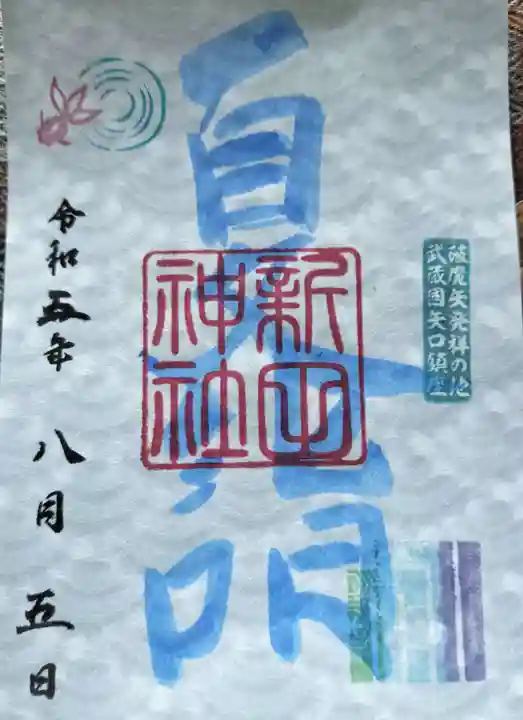 破魔矢発祥の地
武蔵国矢口鎮座
夏詣
新田
神社
令和五年 八月 五日